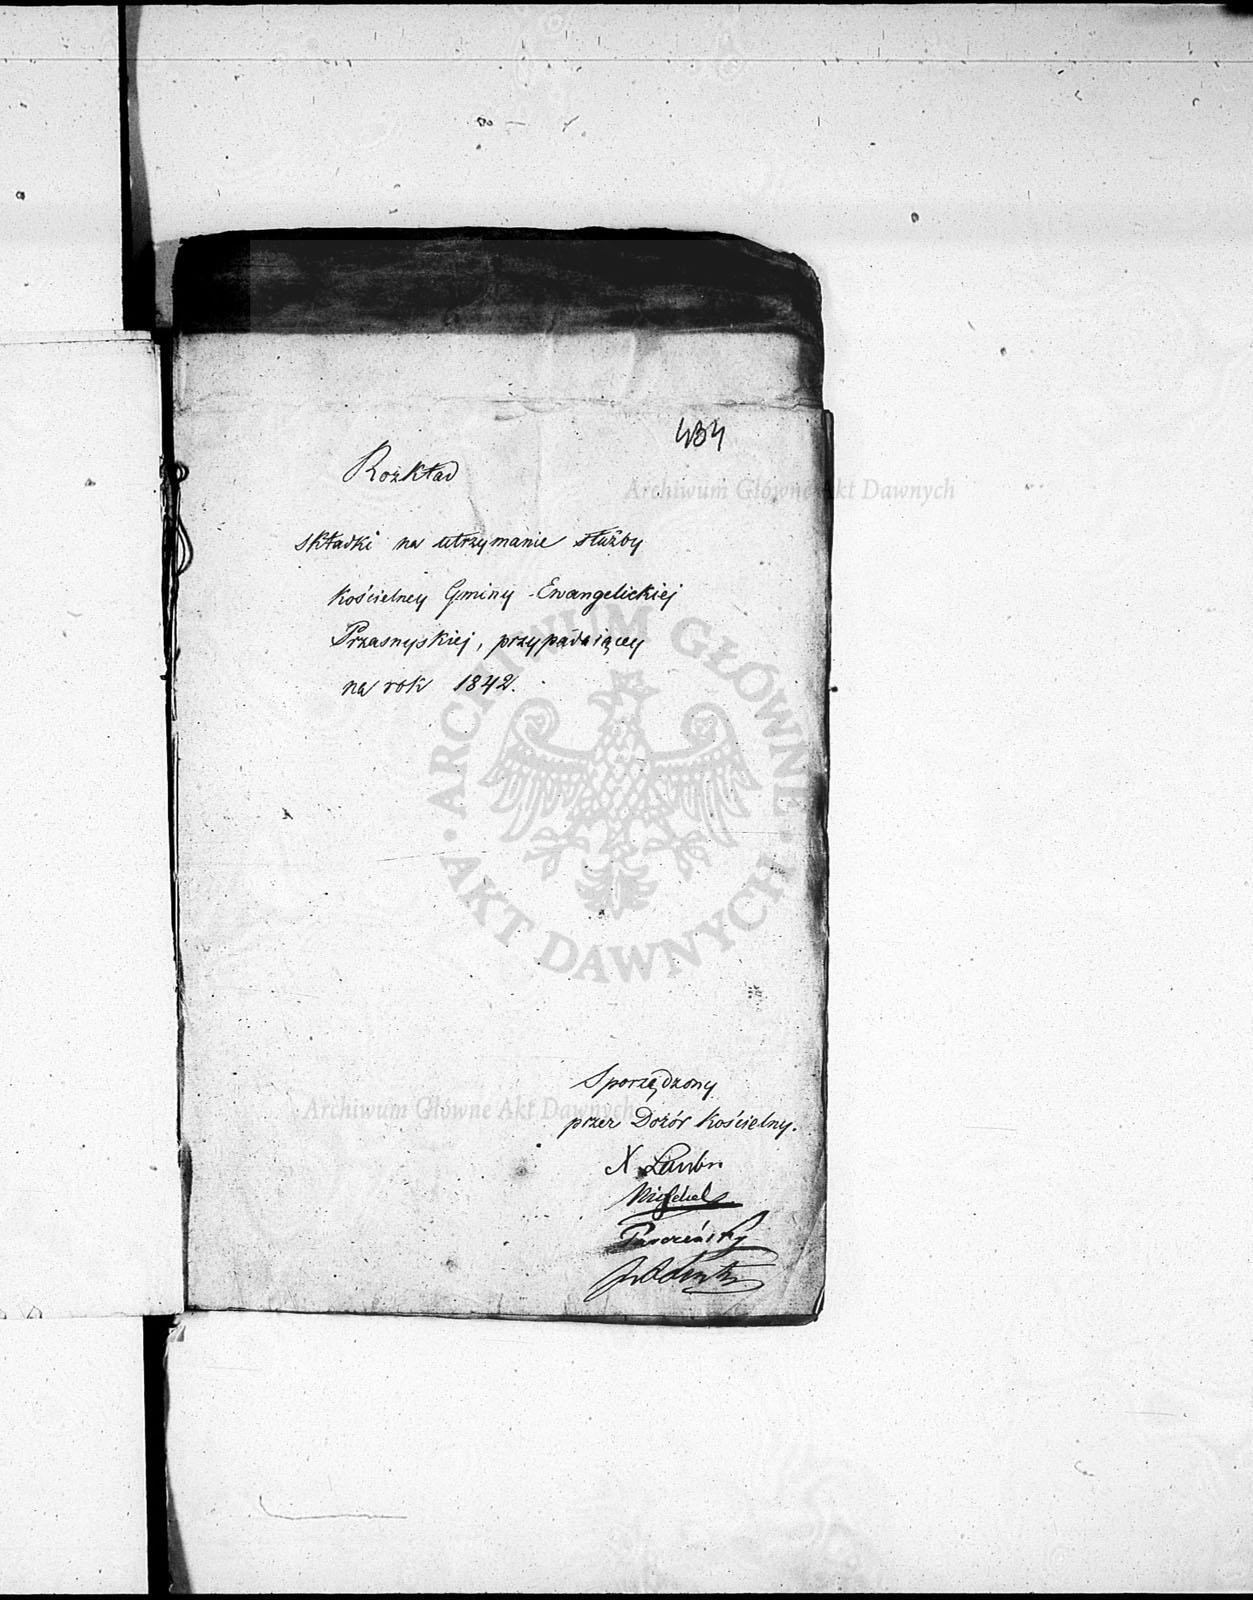 434
Rozkład
Archiwum Główne Akt Dawnych
składki na utrzymanie służby
kościelney Gminy Ewangelickiej
Przasnyskiej, przypadaiącey
na rok 1842.
ARCHIWUM GŁÓWNE
AKT DAWNYCH
Sporządzony
Archiwum Główne Akt Dawnych
przez Dozór Kościelny.